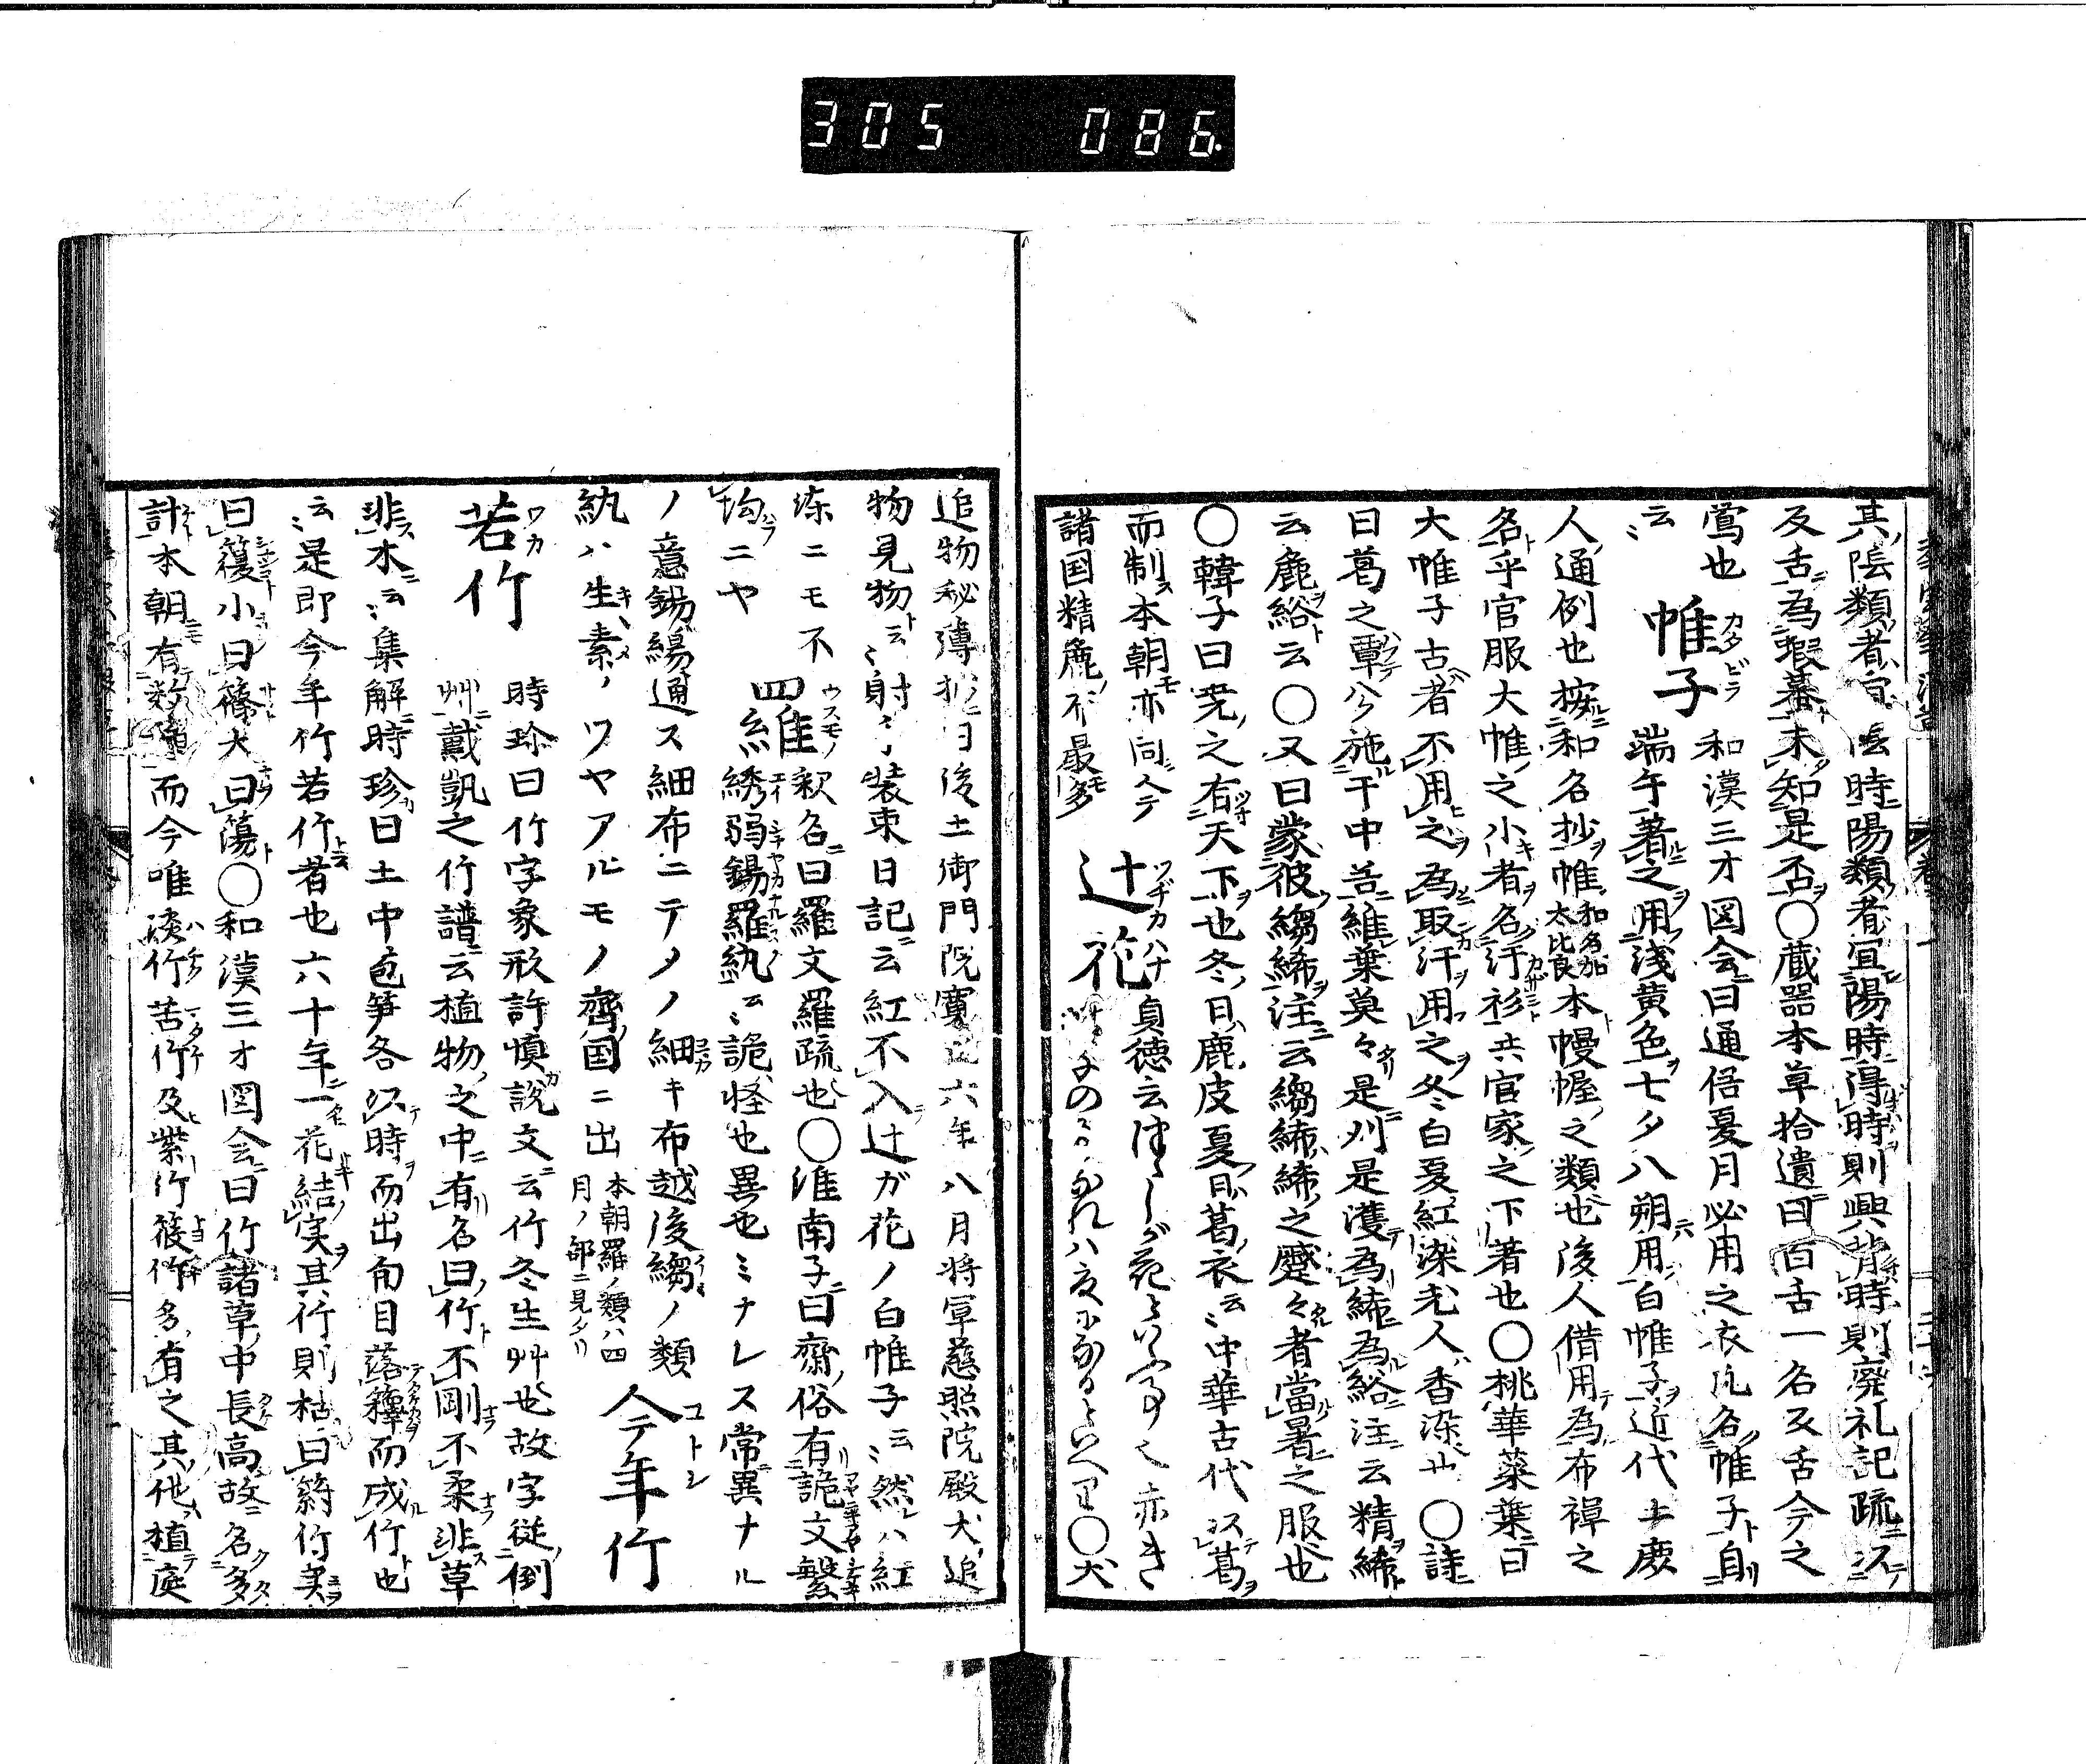 305 086
其陰類者宜陰時陽類者宜陽時得時則興背時則廃礼記疏ニ以
反舌為蝦蟇未知是否〇蔵器本草拾遺曰百舌一名反舌今之
鶯也
帷子
カタビラ
和漢三才図会曰通俗夏月必用之衣凡名帷子自
云〻
端午著之用浅黄色七夕八朔用白帷子近代士庶
人通例也按和名抄帷和名加太比良本幔幄之類也後人借用為布襌之
名乎官服大帷之小者名汗衫共官家之下著也〇桃華蘂葉曰
大帷子古者不用之為取汗用之冬白夏紅染老人香染也〇詩
曰葛之覃兮施于中谷維葉莫々是刈是濩為絺為綌注云精絺
云麁綌云〇又曰蒙彼縐絺注云縐絺絺之蹙々者當暑之服也
〇韓子曰尭之有天下也冬日鹿皮夏日葛衣云〻中華古代以葛
而制本朝亦同今テ
辻花
ツヂカハナ
貞徳云 赤き
諸国精麁不最多
なれハ夏になるといへり〇犬
追物秘傳抄曰後土御門院寛正六年八月将軍慈照院殿犬追
物見物云〻射手装束日記云紅不入辻ガ花ノ白帷子云〻然ハ紅
練ニモ不
羅
ウスモノ
釈名曰羅文羅疏也〇淮南子曰齋俗有詭文繁
拘ニヤ
四
繡弱錫羅紈云〻詭怪也異也ミナレス常異ナル
ノ意錫緆通ス細布ニテタノ細キ布越後縐ノ類
今年竹
コトシ
紈ハ生素ノツヤアルモノ齊国ニ出本朝羅ノ類ハ四月ノ部ニ見タリ
若竹
ワカ
時珍曰竹字象形許慎説文云竹冬生艸也故字従倒
艸戴凱之竹譜云植物之中有名曰竹不剛不柔非草
非木云〻集解時珍曰土中苞笋各以時而出旬目落籜而成竹也
云〻是即今年竹若竹者也六十年一花結実其竹則枯曰䈽竹実
曰䉤小曰篠大曰簜〇和漢三才図会曰竹諸草中長高故名多
計本朝有数種而今唯淡竹苦竹及紫竹筱竹多有之其他植庭